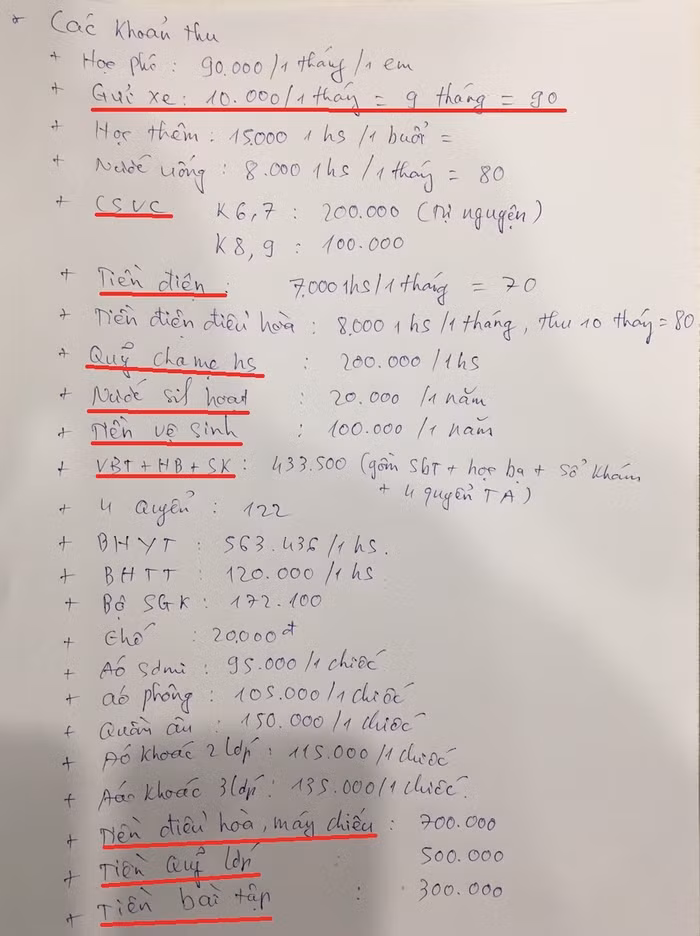 * Các khoản thu
+ Học phí : 90.000/1 tháng/1 em
+ Gửi xe : 10.000/1 tháng = 9 tháng = 90
+ Học thêm : 15.000 1 hs /1 buổi =
+ Nước uống : 8.000 1hs /1 tháng = 80
+ CSVC K6,7 : 200.000 (tự nguyện)
K8,9 : 100.000
+ Tiền điện : 7.000 1hs/1 tháng = 70
+ Tiền điện điều hoà : 8.000 1 hs /1 tháng, thu 10 tháng = 80
+ Quỹ cha mẹ hs : 200.000 /1hs
+ Nước sit hoạt : 20.000 /1 năm
+ Tiền vệ sinh : 100.000 /1 năm
+ VBT + HB + SK : 433.500 (gồm SbT + học bạ + sổ khám
+ 4 quyển TA)
+ 4 Quyển : 122
+ BHYT : 563.436 /1 hs.
+ BHTT : 120.000 /1 hs
+ Bộ SGK : 172.100
+ Ghế : 20.000đ
+ Áo sơmi : 95.000 /1 chiếc
+ áo phông : 105.000 /1 chiếc
+ Quần âu : 150.000 /1 chiếc
+ Áo khoác 2 lớp : 115.000 /1 chiếc
+ Áo khoác 3 lớp : 135.000/1 chiếc.
+ Tiền điều hoà, máy chiếu : 700.000
+ Tiền Quỹ lớp : 500.000
+ Tiền bài tập : 300.000